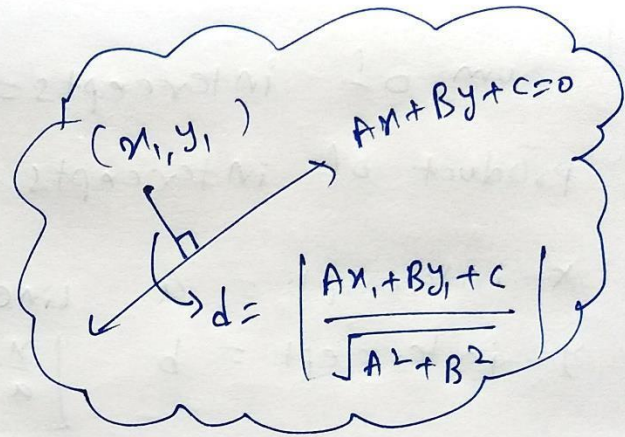 (x₁, y₁)
Ax+By+C=0
d = | Ax₁+By₁+C / √A²+B² |